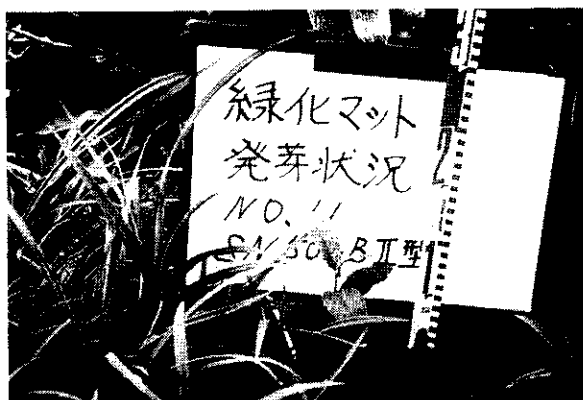 緑化マット
発芽状況
NO. 11
BⅡ型